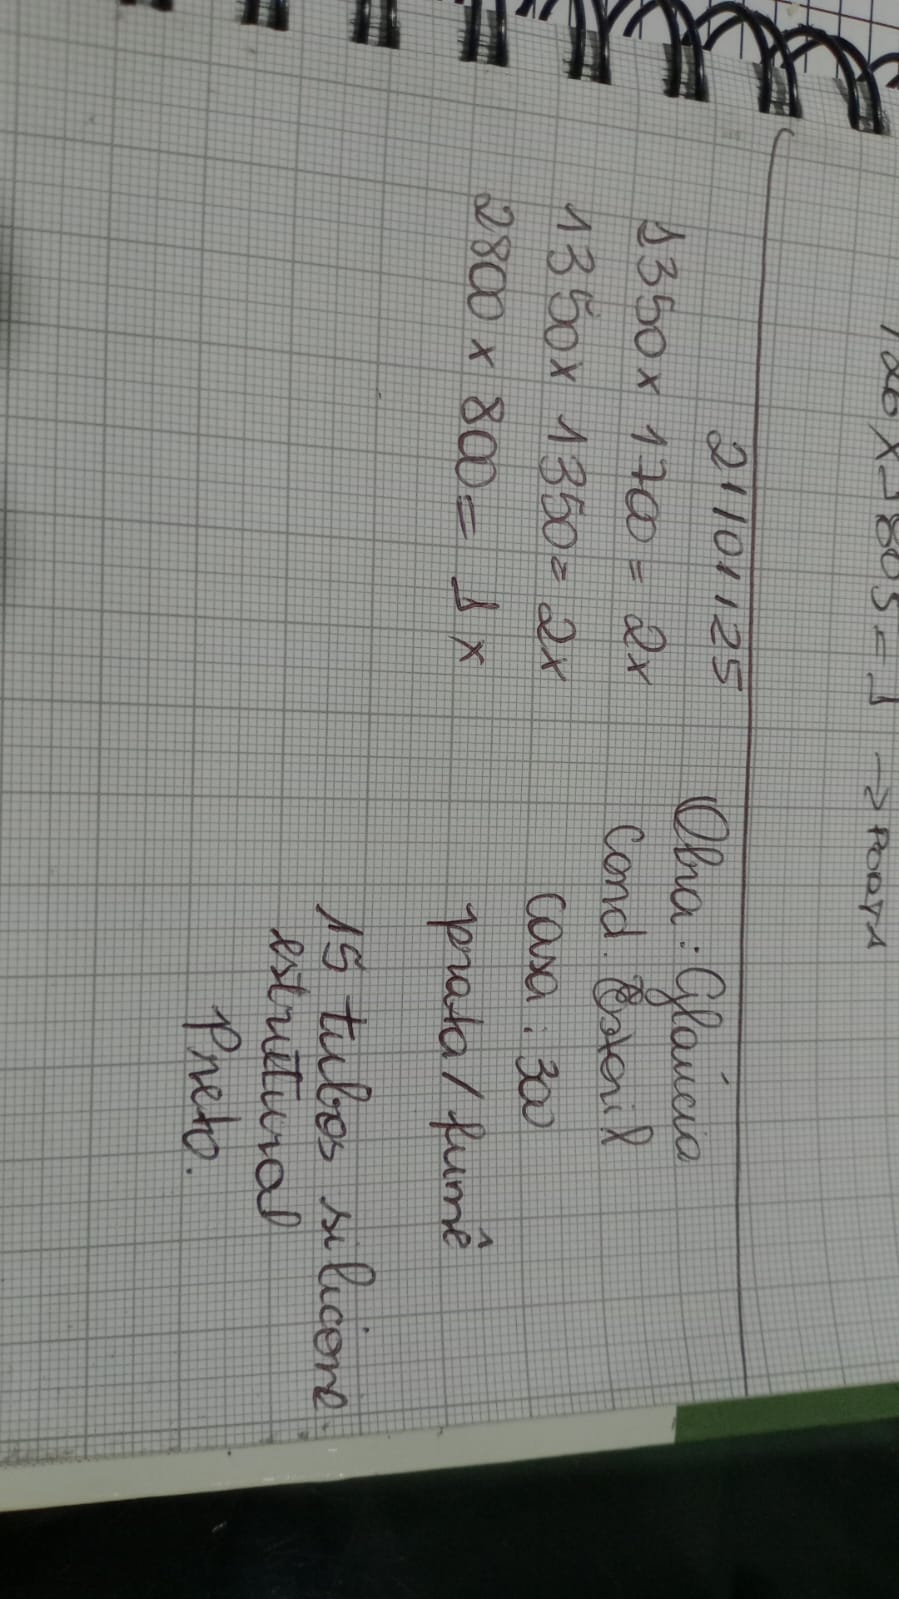 x 805 = 1 → PORTA
21/10/25
1350 x 1700 = 2x
1350 x 1350 = 2x
2800 x 800 = 1x
Obra: Gláucia
Cond.
Casa: 300
prata / fumê
15 tubos silicone
estrutural
Preto.